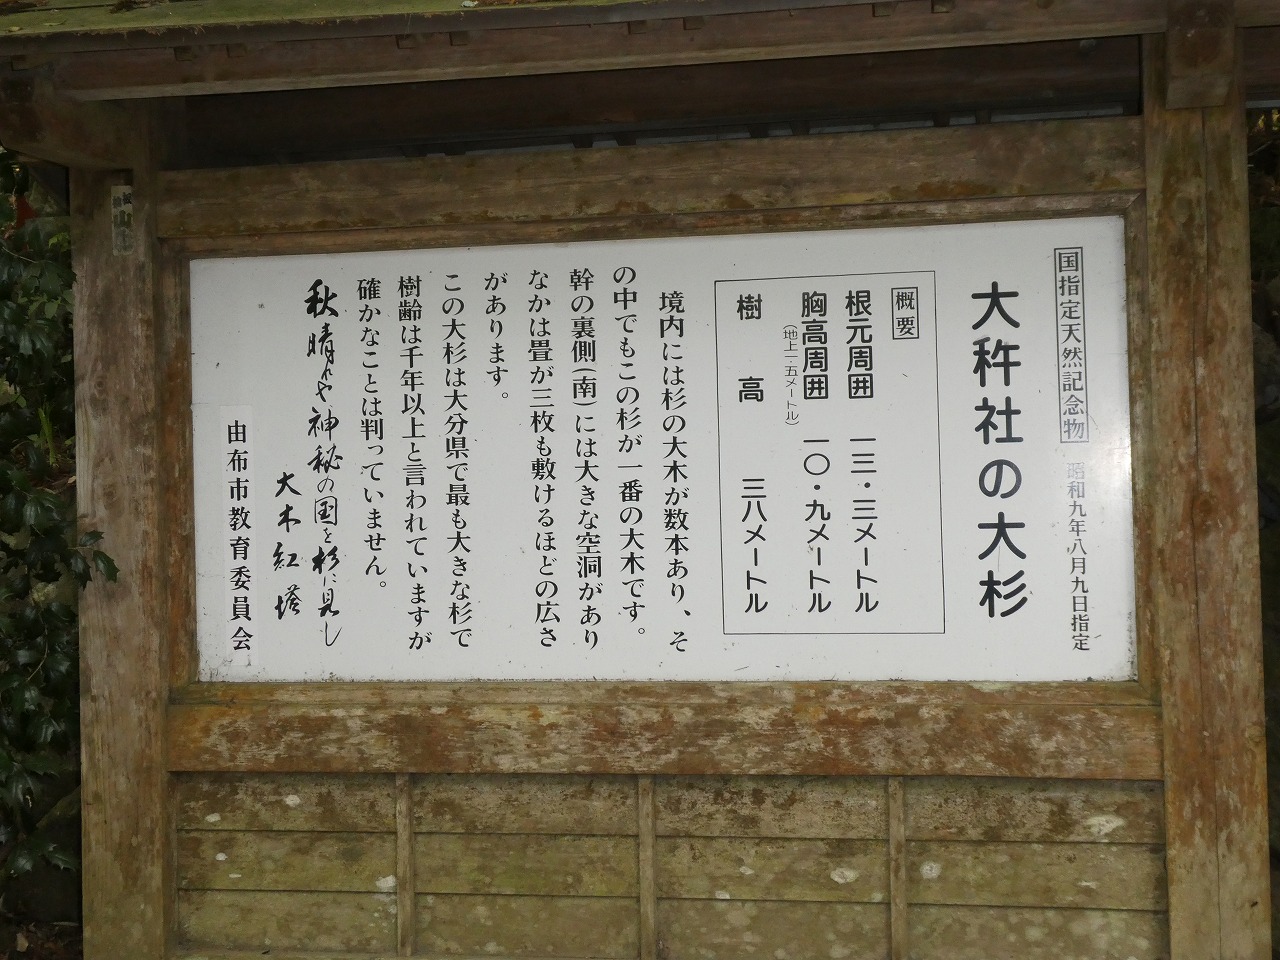 国指定天然記念物 昭和九年八月九日指定
大杵社の大杉
概要
根元周囲 一三・三メートル
胸高周囲 一〇・九メートル
(地上一・五メートル)
樹高 三八メートル
境内には杉の大木が数本あり、そ
の中でもこの杉が一番の大木です。
幹の裏側(南)には大きな空洞があり
なかは畳が三枚も敷けるほどの広さ
があります。
この大杉は大分県で最も大きな杉で
樹齢は千年以上と言われていますが
確かなことは判っていません。
秋晴れや神秘の国を杉に見し
大木紅塔
由布市教育委員会